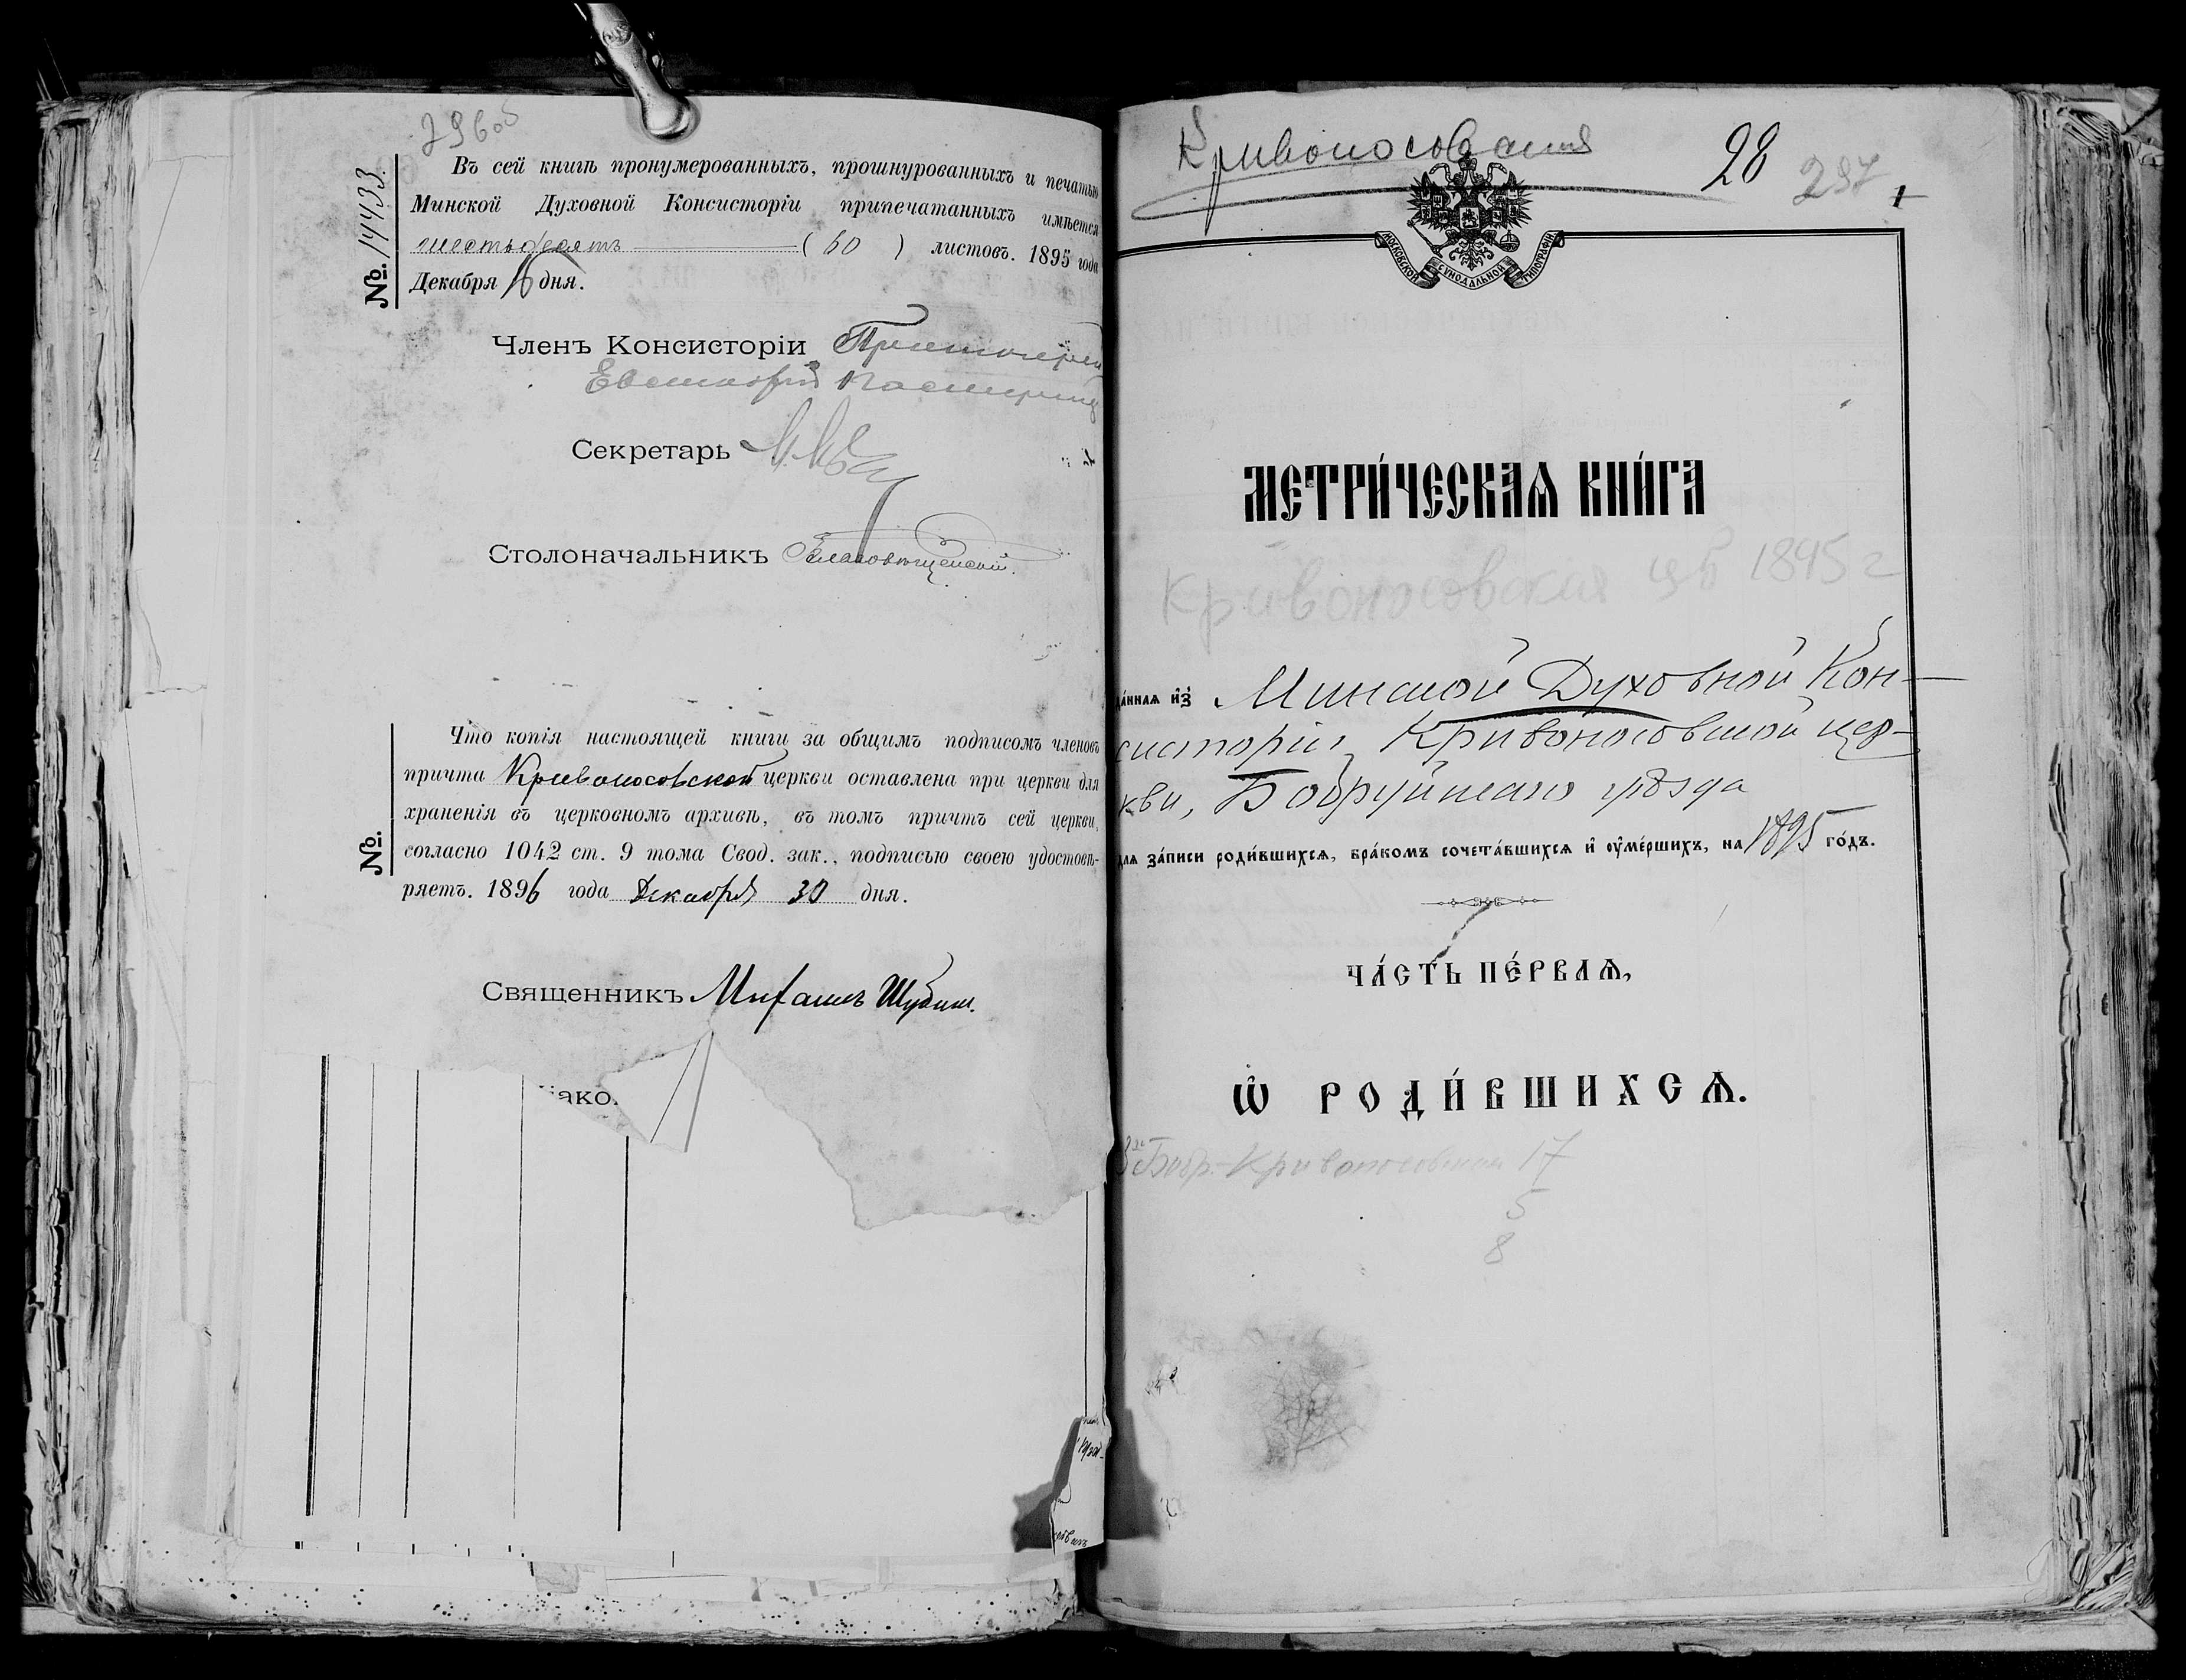 296 об
№. 14433.
Въ сей книгѣ пронумерованныхъ, прошнурованныхъ и печатью
Минской Духовной Консисторіи припечатанныхъ имѣется
шестьдесятъ (60) листовъ. 1895 года
Декабря 16 дня.
Членъ Консисторіи Протоіерей
Секретарь
Столоначальникъ Благовѣщенскій.
№.
Что копія настоящей книги за общимъ подписомъ членовъ
причта Кривоносовской церкви оставлена при церкви для
храненія въ церковномъ архивѣ, въ томъ причтъ сей церкви,
согласно 1042 ст. 9 тома Свод. зак., подписью своею удостовѣ-
ряетъ. 1896 года Декабря 30 дня.
Священникъ Михаилъ Шубин.
іако
Кривоносовская 28 297 1
МОСКОВСКОЙ СУНОДАЛЬНОЙ ТИПОГРАФІИ
МЕТРИ́ЧЕСКАѦ КНИ́ГА
Кривоносовская цв 1895 г
да́ннаѧ и҆з̾ Минской Духовной Кон-
систоріи Кривоносовской цер-
кви, Бобруйскаго уѣзда
для за́писи роди́вшихсѧ, бра́комъ сочета́вшихсѧ и҆ оу҆ме́ршихъ, на 1895 го́дъ.
ЧА́СТЬ ПЕ́РВАѦ,
Ѡ҆ РОДИ́ВШИХСѦ.
Бобр. Кривоносовская 17
5
8